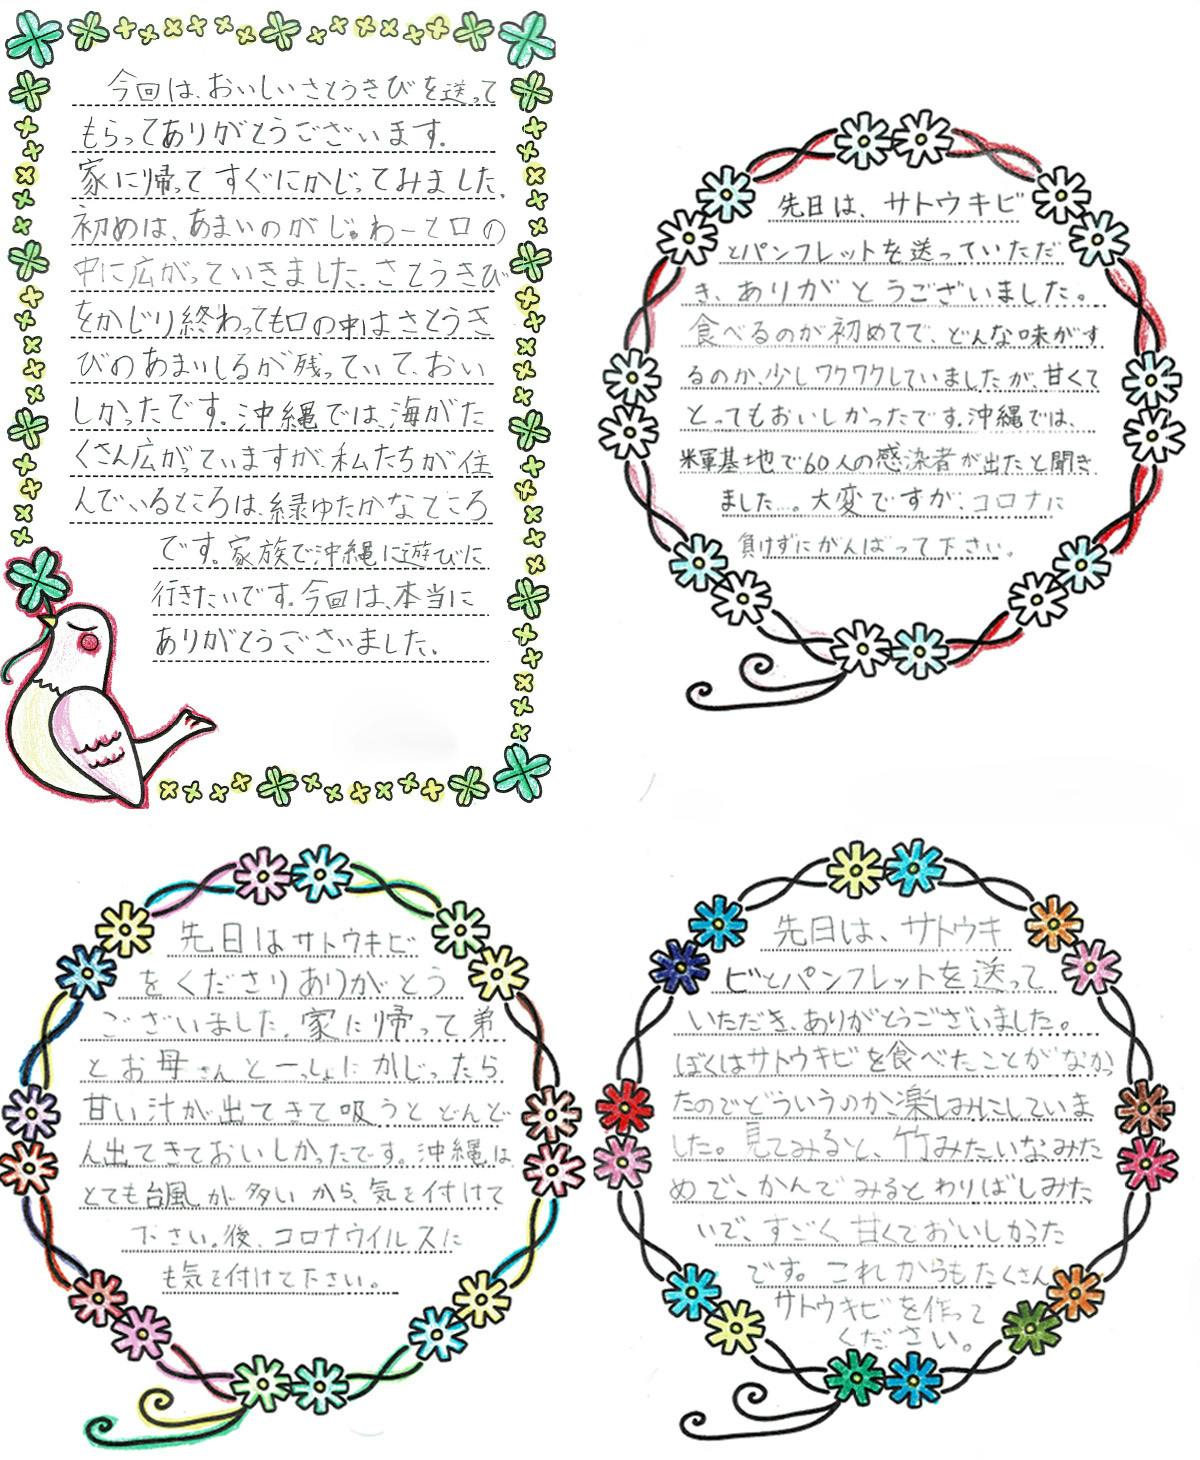 今回は、おいしいさとうきびを送って
もらってありがとうございます。
家に帰ってすぐにかじってみました。
初めは、あまいのがじゅわーと口の
中に広がっていきました。さとうきび
をかじり終わっても口の中はさとうき
びのあまいしるが残っていて、おい
しかったです。沖縄では、海がた
くさん広がっていますが、私たちが住
んでいるところは、緑ゆたかなところ
です。家族で沖縄に遊びに
行きたいです。今回は、本当に
ありがとうございました。
先日は、サトウキビ
とパンフレットを送っていただ
き、ありがとうございました。
食べるのが初めてで、どんな味がす
るのか、少しワクワクしていましたが、甘くて
とってもおいしかったです。沖縄では、
米軍基地で60人の感染者が出たと聞き
ました…。大変ですが、コロナに
負けずにがんばって下さい。
先日はサトウキビ
をくださりありがとう
ございました。家に帰って弟
とお母さんと一っしょにかじったら
甘い汁が出てきて吸うとどんど
ん出てきておいしかったです。沖縄は
とても台風が多いから、気を付けて
下さい。後、コロナウイルスに
も気を付けて下さい。
先日は、サトウキ
ビとパンフレットを送って
いただき、ありがとうございました。
ぼくはサトウキビを食べたことがなかっ
たのでどういうのか楽しみにしていま
した。見てみると、竹みたいなみた
めで、かんでみるとわりばしみた
いで、すごく甘くておいしかった
です。これからもたくさん
サトウキビを作って
ください。